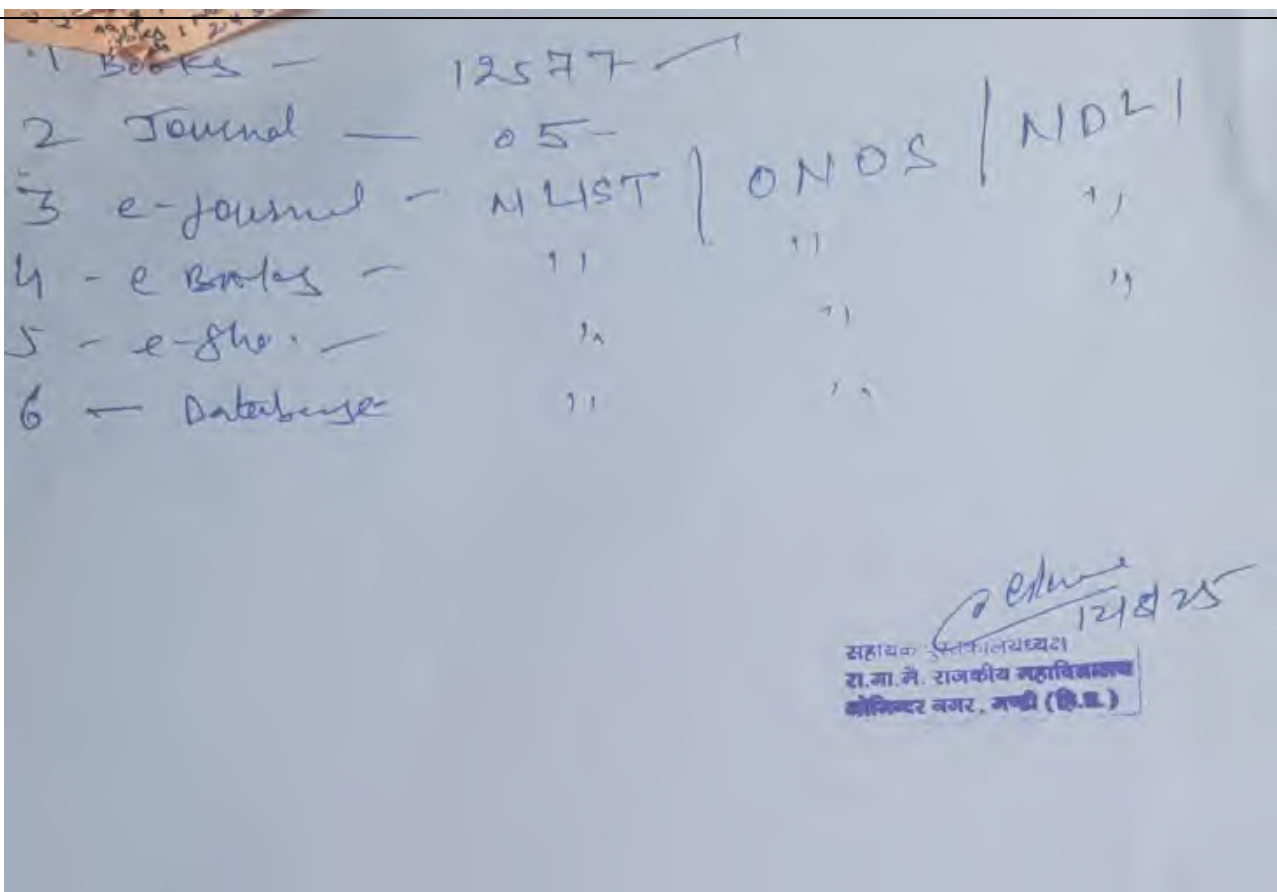 1 Books — 12577
2 Journal — 05
3 e-journal - NLIST | ONOS | NDLI
4 - e Books - " " "
5 - e-Sho. — " " "
6 — Database " "
12/8/25
सहायक पुस्तकालयध्यक्ष
रा.मा.मै. राजकीय महाविद्यालय
जोगिन्दर नगर, मण्डी (हि.प्र.)